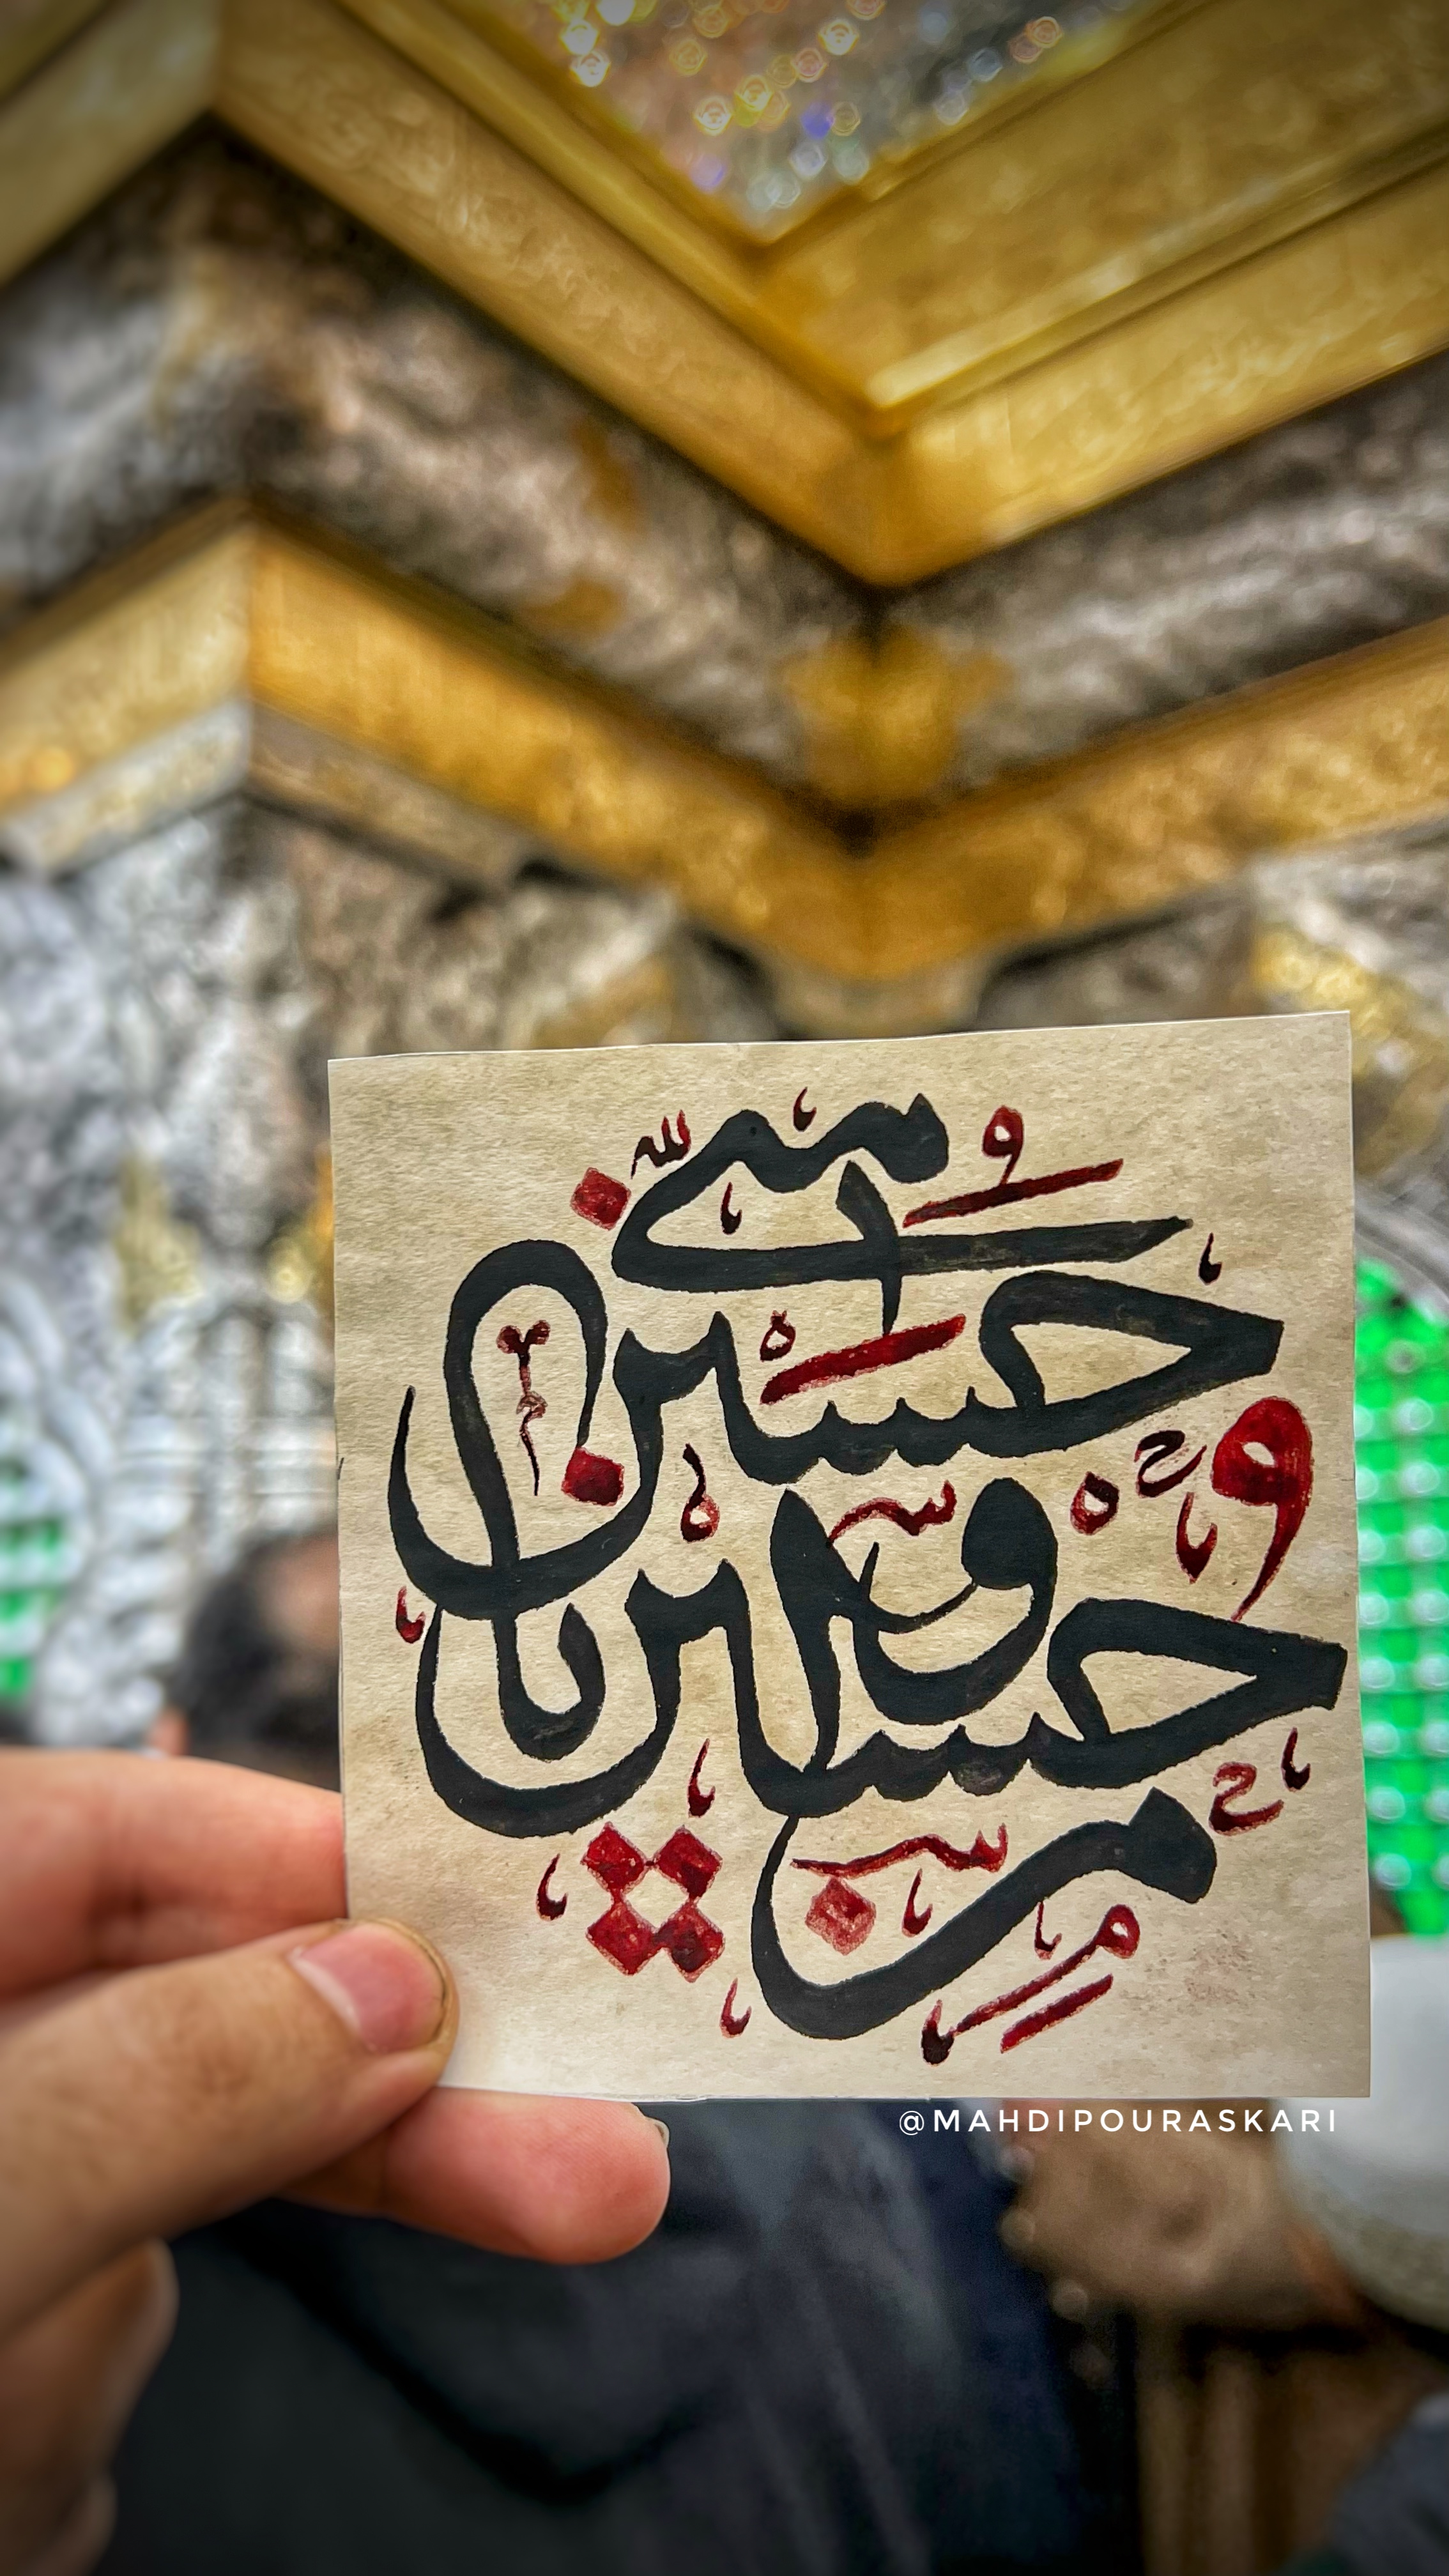 حسین منی و انا من حسین
@MAHDIPOURASKARI